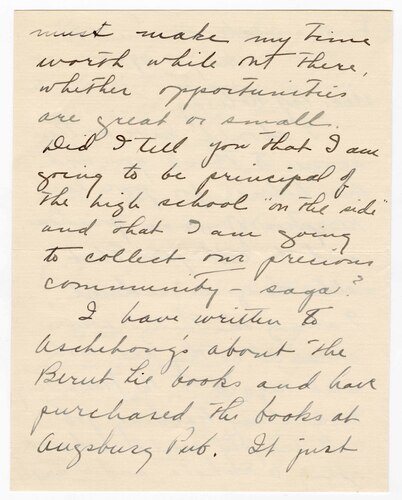 must make my time
worth while out there,
whether opportunities
are great or small.
Did I tell you that I am
going to be principal of
the high school "on the side"
and that I am going
to collect our precious
community - saga?
I have written to
Aschehoug's about the
Bernt Lie books and have
purchased the books at
Augsburg Pub. It just